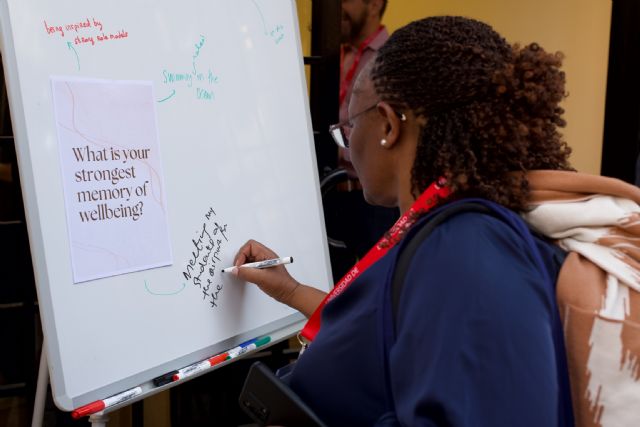 being inspired by
strong role models
Swimming in the
Ocean
What is your
strongest
memory of
wellbeing?
Meeting my
students at
the airport for
the
UNIVERSIDAD DE